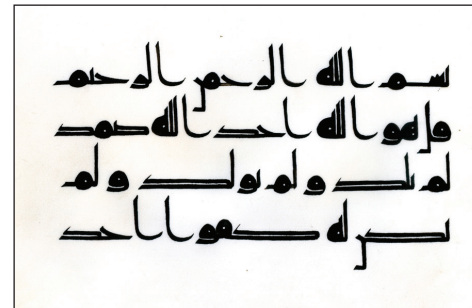 بسم الله الرحمن الرحيم
قل هو الله احد الله صمد
لم يلد و لم يولد و لم
يكن له كفوا احد